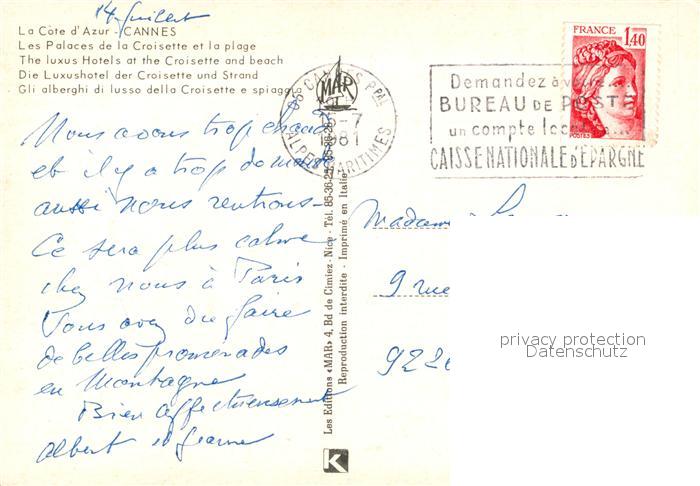 14 Juillet
La Côte d'Azur - CANNES
Les Palaces de la Croisette et la plage
The luxus Hotels at the Croisette and beach
Die Luxushotel der Croisette und Strand
Gli alberghi di lusso della Croisette e spiaggia
Nous avons trop chaud
et il y a trop de monde
aussi nous rentrons -
Ce sera plus calme
chez nous à Paris
Vous avez dû faire
de belles promenades
en Montagne
Bien affectueusement
Albert et Jeanne
MAR
Les Editions «MAR» 4, Bd de Cimiez - Nice - Tél. 85-36-25
Reproduction interdite - Imprimé en Italie
K
06 CANNES PPAL
-7
1981
ALPES MARITIMES
Demandez à
BUREAU DE POSTE
un compte
CAISSE NATIONALE D'EPARGNE
FRANCE
1,40
POSTES
Madame
9 rue
922
privacy protection
Datenschutz